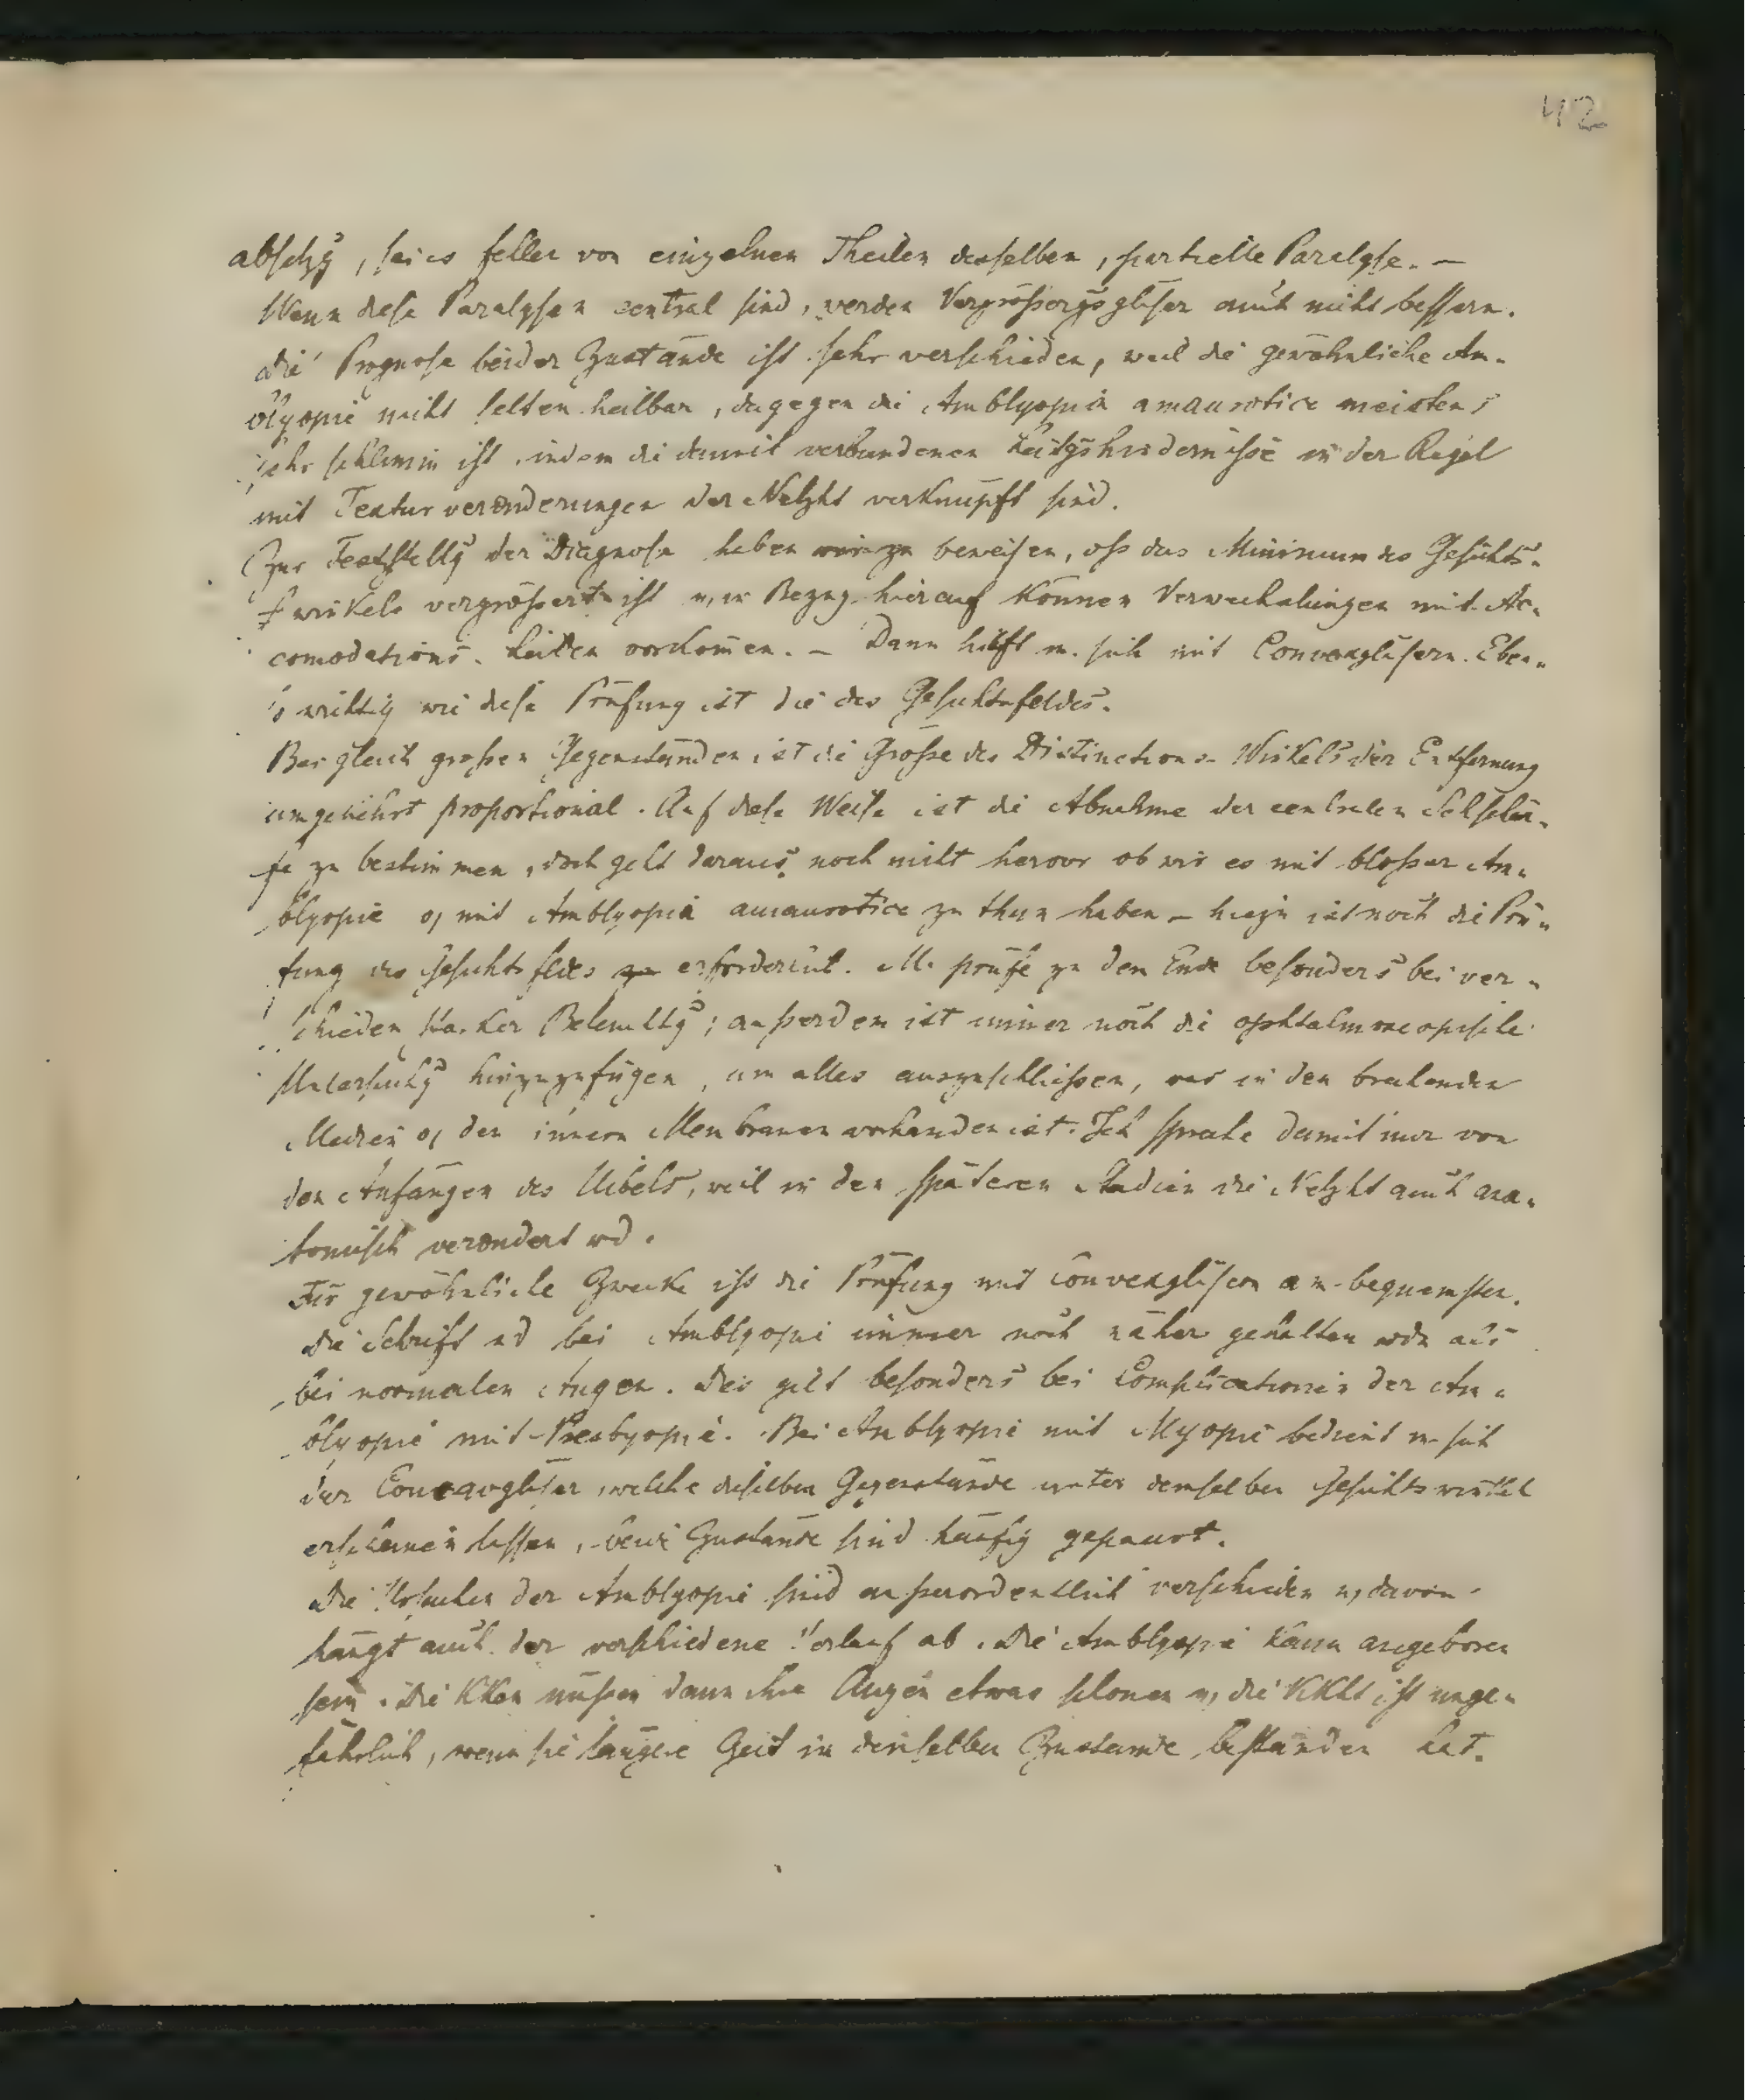 42
absetzg, sei es seller von einzelnen Theilen desselben, partielle Paralyse. —
Wenn diese Paralysen central sind, werden Vergrößergsgläser auch nicht bessern.
Die Prognose beider Zustände ist sehr verschieden, weil die gewöhnliche Am-
blyopie nicht selten heilbar, dagegen die Amblyopia amaurotica meistens
sehr schlimm ist, indem die damit verbundenen Leitgshindernisse in der Regel
mit Texturveränderungen der Netzht verknüpft sind.
Zur Feststellg der Diagnose haben wir zu beweisen, oß das Minimum des Gesichts-
winkels vergrößert ist u, in Bezug hierauf können Verwechslungen mit Ac-
comodations- vorkomen. — Dann hilft m. sich mit Convexgläsern. Eben-
so wichtig wie diese Prüfung ist die des Gesichtsfeldes.
Bei gleich großen Gegenständen ist die Große des Distinctions-Winkels der Entfernung
umgekehrt proportional. Auf diese Weise ist die Abnahme der centralen Sehschär-
fe zu bestimmen, doch geht daraus noch nicht hervor ob wir es mit bloßer Am-
blyopie o, mit Amblyopia amaurotica zu thun haben — hiezu ist noch die Prü-
fung des Gesichtsfldes erforderlich. M. prüfe zu dem Ende besonders bei ver-
schieden starker Beleuchtg; außerdem ist immer noch die ophtalmoscopische
Untersuchg hinzuzufügen, um alles auszuschließen, was in den brechenden
Medien o, den innern Membranen vorhanden ist. Ich spreche damit nur von
den Anfängen des Uibels, weil in den späteren Stadien die Netzht auch ana-
tomisch verändert wd.
Für gewöhnliche Zwecke ist die Prüfung mit Convexgläsern am bequemsten.
Die Schrift wd bei Amblyopie immer noch näher gehalten wdn als
bei normalen Augen. Dies gilt besonders bei Complicationen der Am-
blyopie mit Presbyopie. Bei Amblyopie mit Myopie bedient m. sich
der Concavgläser, welche dieselben Gegenstände unter demselben Gesichtswinkel
erscheinen lassen, beide Zustände sind häufig gepaart.
Die Ursachen der Amblyopie sind außerordentlich verschieden u, davon
hängt auch der verschiedene Verlauf ab. Die Amblyopie kann angeboren
sein. Die KKen müßen dann ihre Augen etwas schonen u, die KKht ist unge-
fährlich, wenn sie längere Zeit in demselben Zustande bestanden hat.